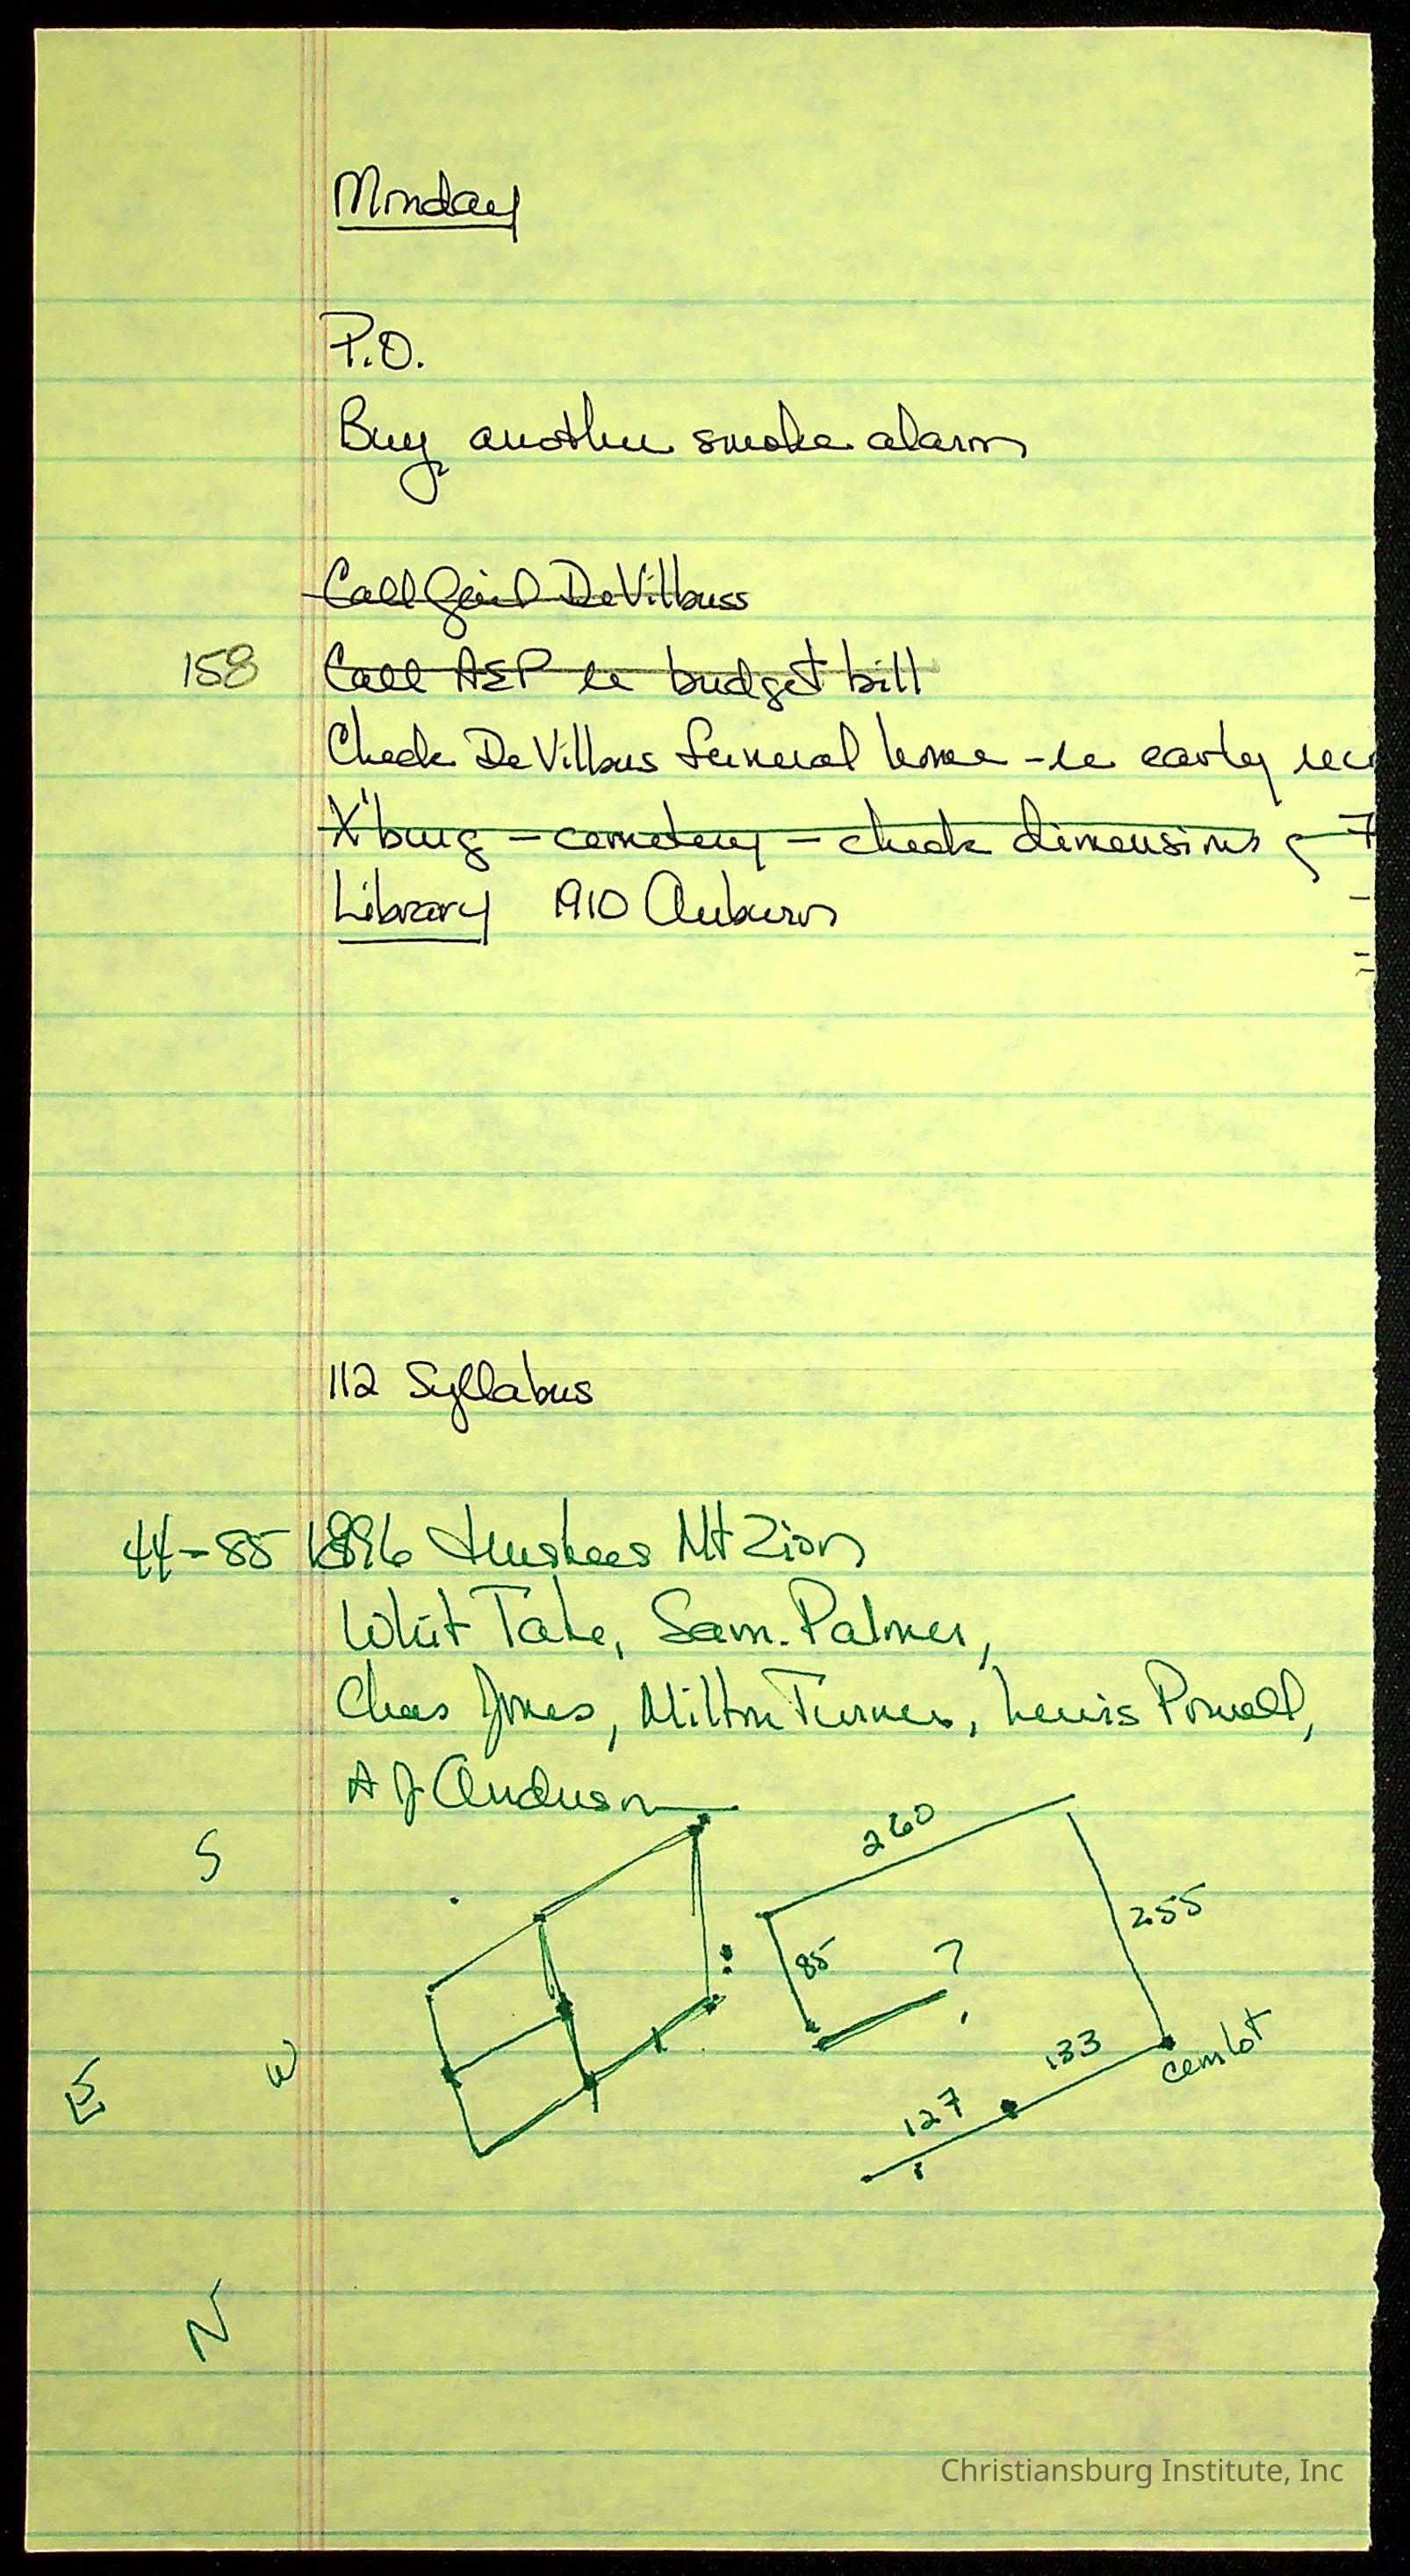 Monday
P.O.
Buy another smoke alarm
Call Gail DeVilbuss
158 Call AEP re budget bill
Check DeVilbus funeral home - re early rec
X'burg - cemetery - check dimensions
Library 1910 Auburn
112 Syllabus
44-85 1896 trustees Mt Zion
Whit Tate, Sam. Palmer,
Chas Jones, Milton Turner, Lewis Powell,
A J Anderson
260
S
255
85 ?
133
W
cem lot
E
127
N
Christiansburg Institute, Inc